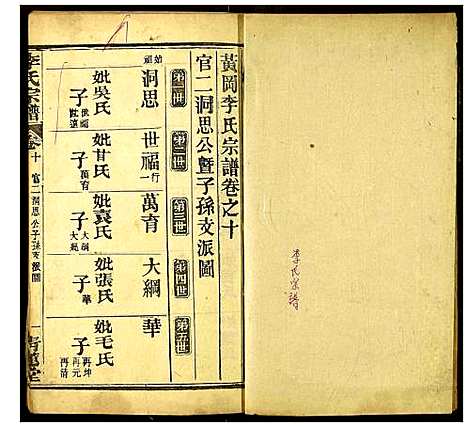 李氏宗譜
黃岡李氏宗譜卷之十
官二洞思公暨子孫支派圖
第一世
始祖 洞思
妣吳氏
子 世福
第二世
世福 行一
妣甘氏
子 萬育
第三世
萬育
妣袁氏
子 大綱 大紀
第四世
大綱
妣張氏
子 華
第五世
華
妣毛氏
子 再坤 再元 再清
李氏宗譜
卷十
官二洞思公子孫支派圖
一